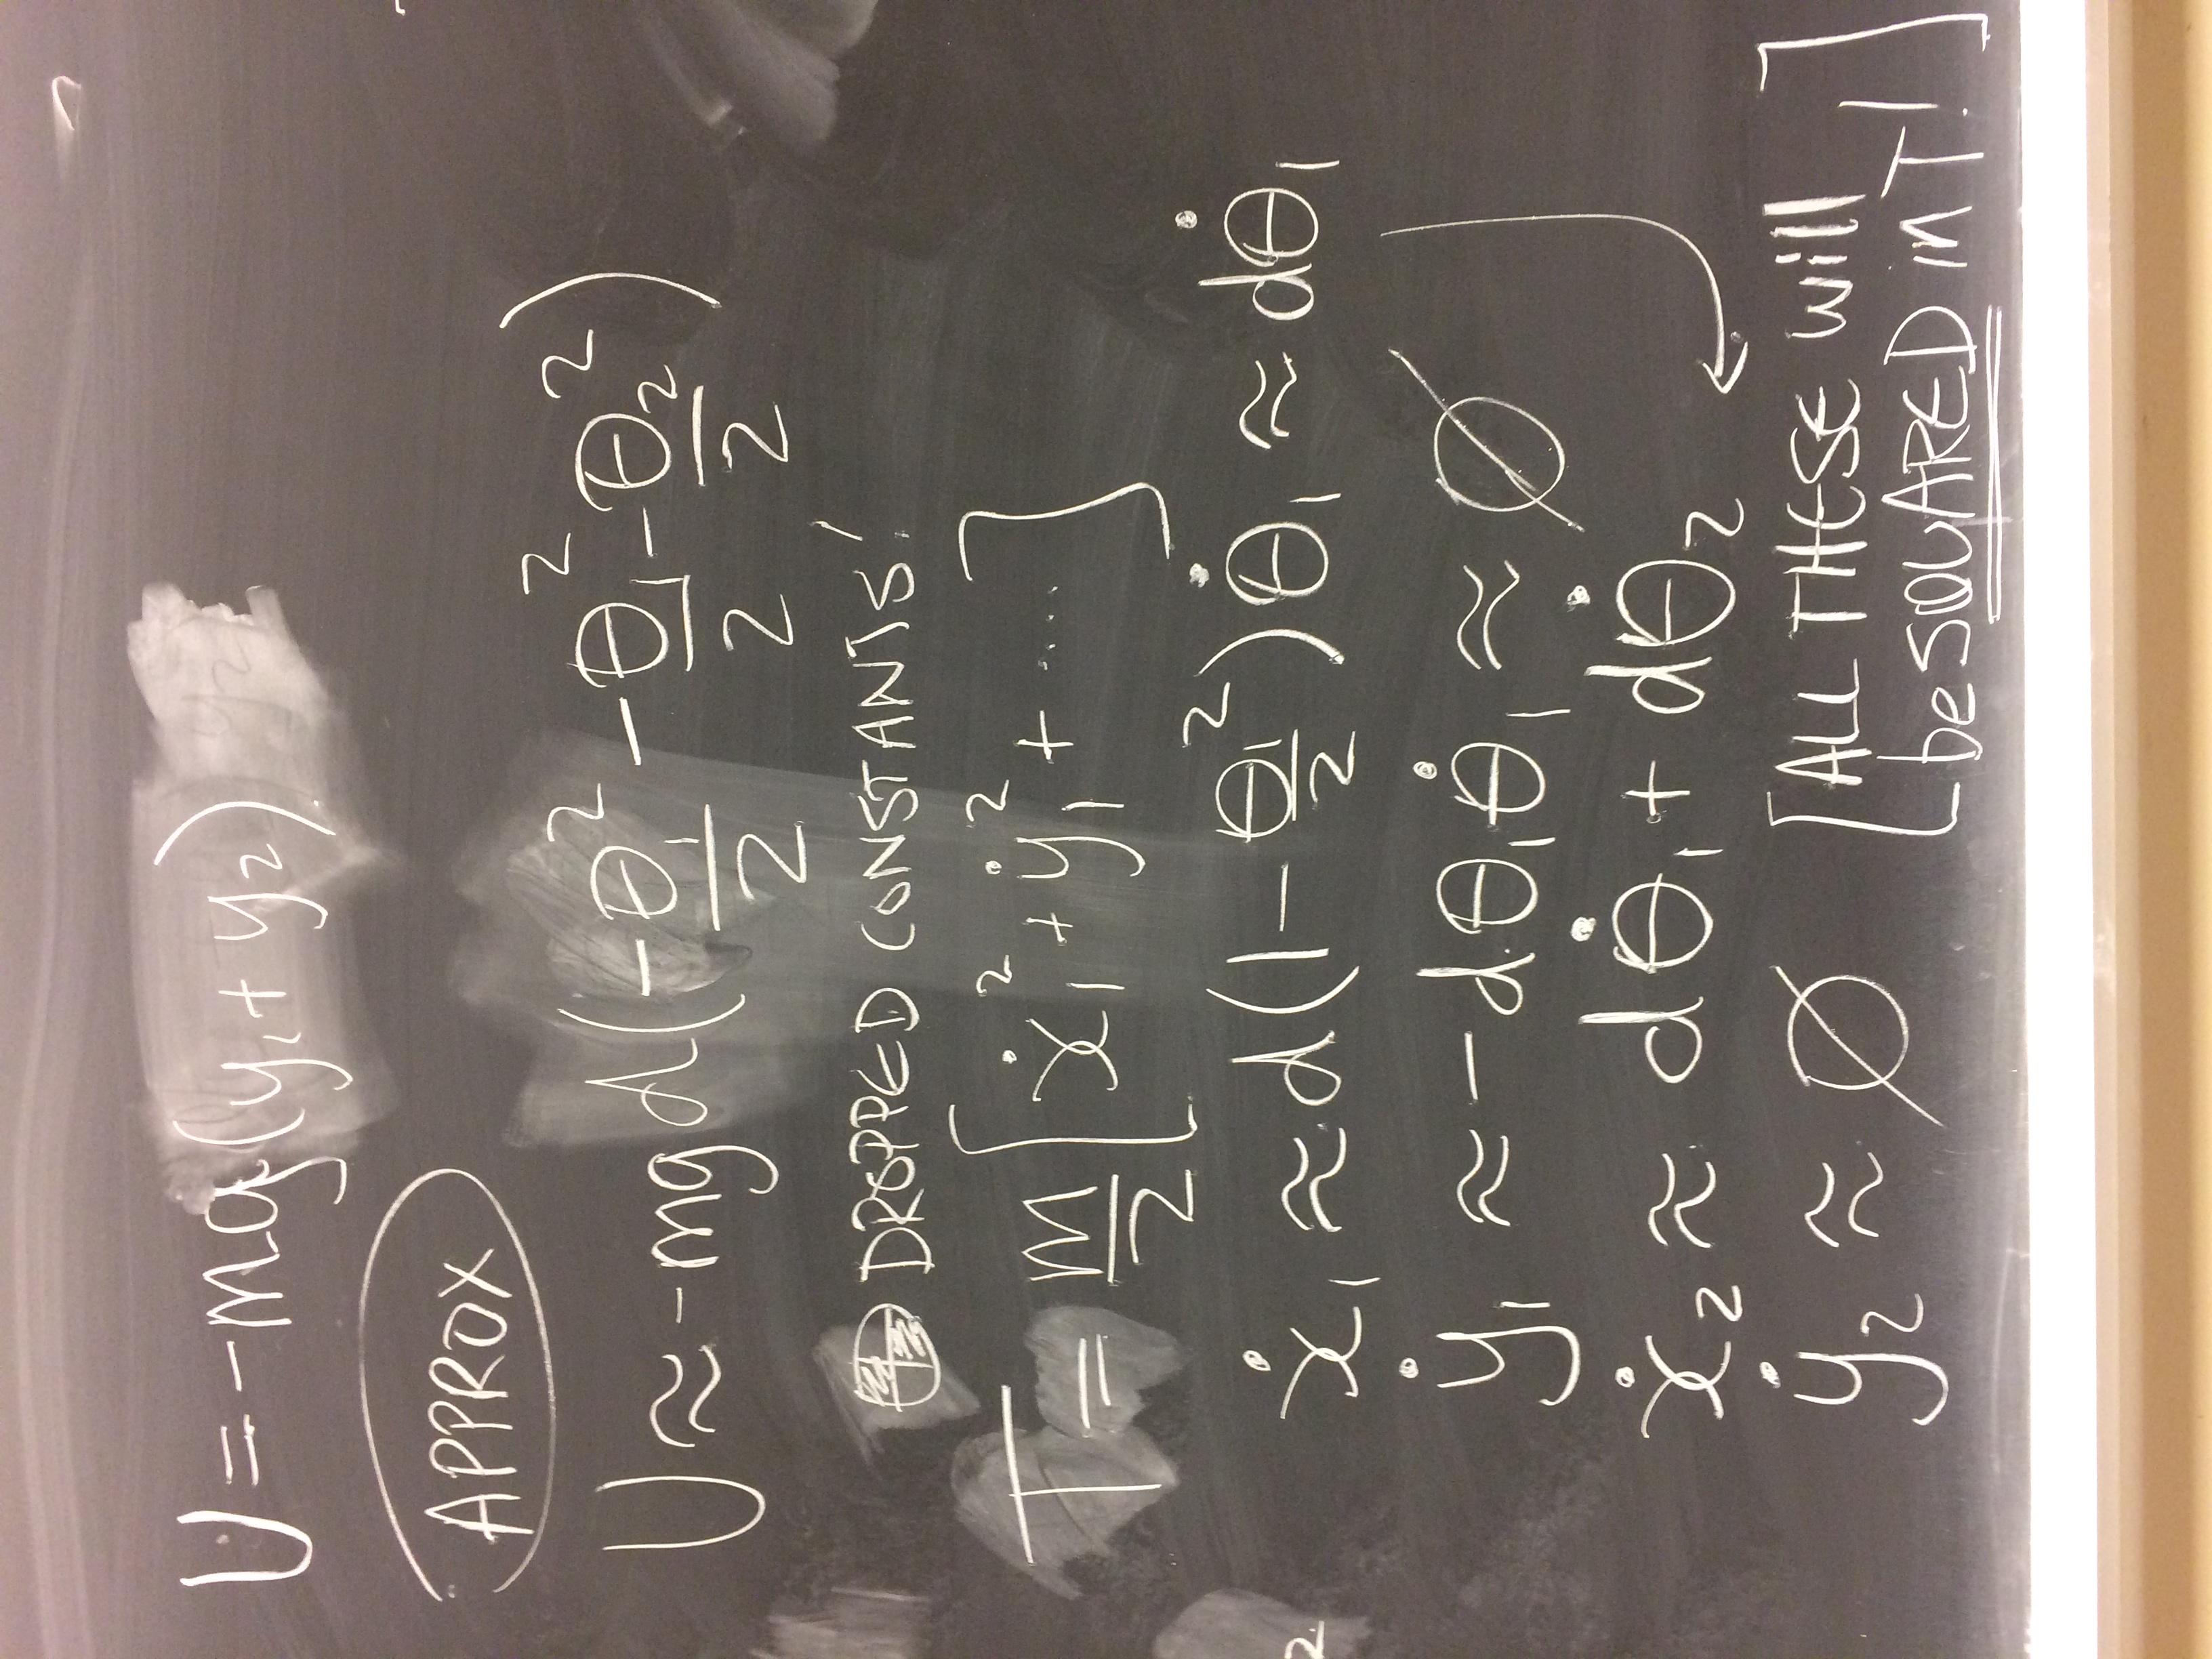 U = -mg(y₁ + y₂)
APPROX
U ≈ -mgd(-θ₁²/2 - θ₁²/2 - θ₂²/2)
DROPPED CONSTANTS!
T = m/2 [ẋ₁² + ẏ₁² + ....]
ẋ₁ ≈ d(1 - θ₁²/2)θ̇₁ ≈ dθ̇₁
ẏ₁ ≈ -dθ₁θ̇₁ ≈ ∅
ẋ₂ ≈ dθ̇₁ + dθ̇₂
ẏ₂ ≈ ∅ [ALL THESE will
be SQUARED in T!]